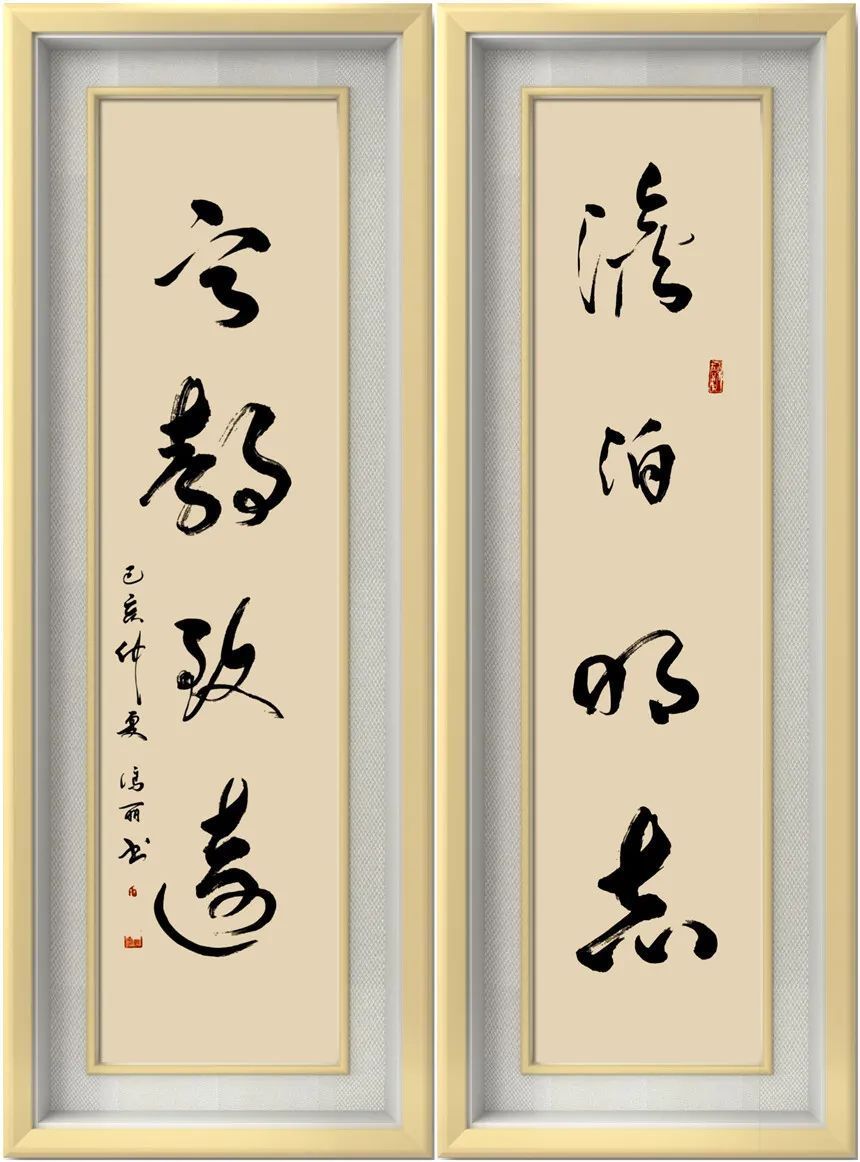 澹泊明志
宁静致远
己亥仲夏 冯丽书